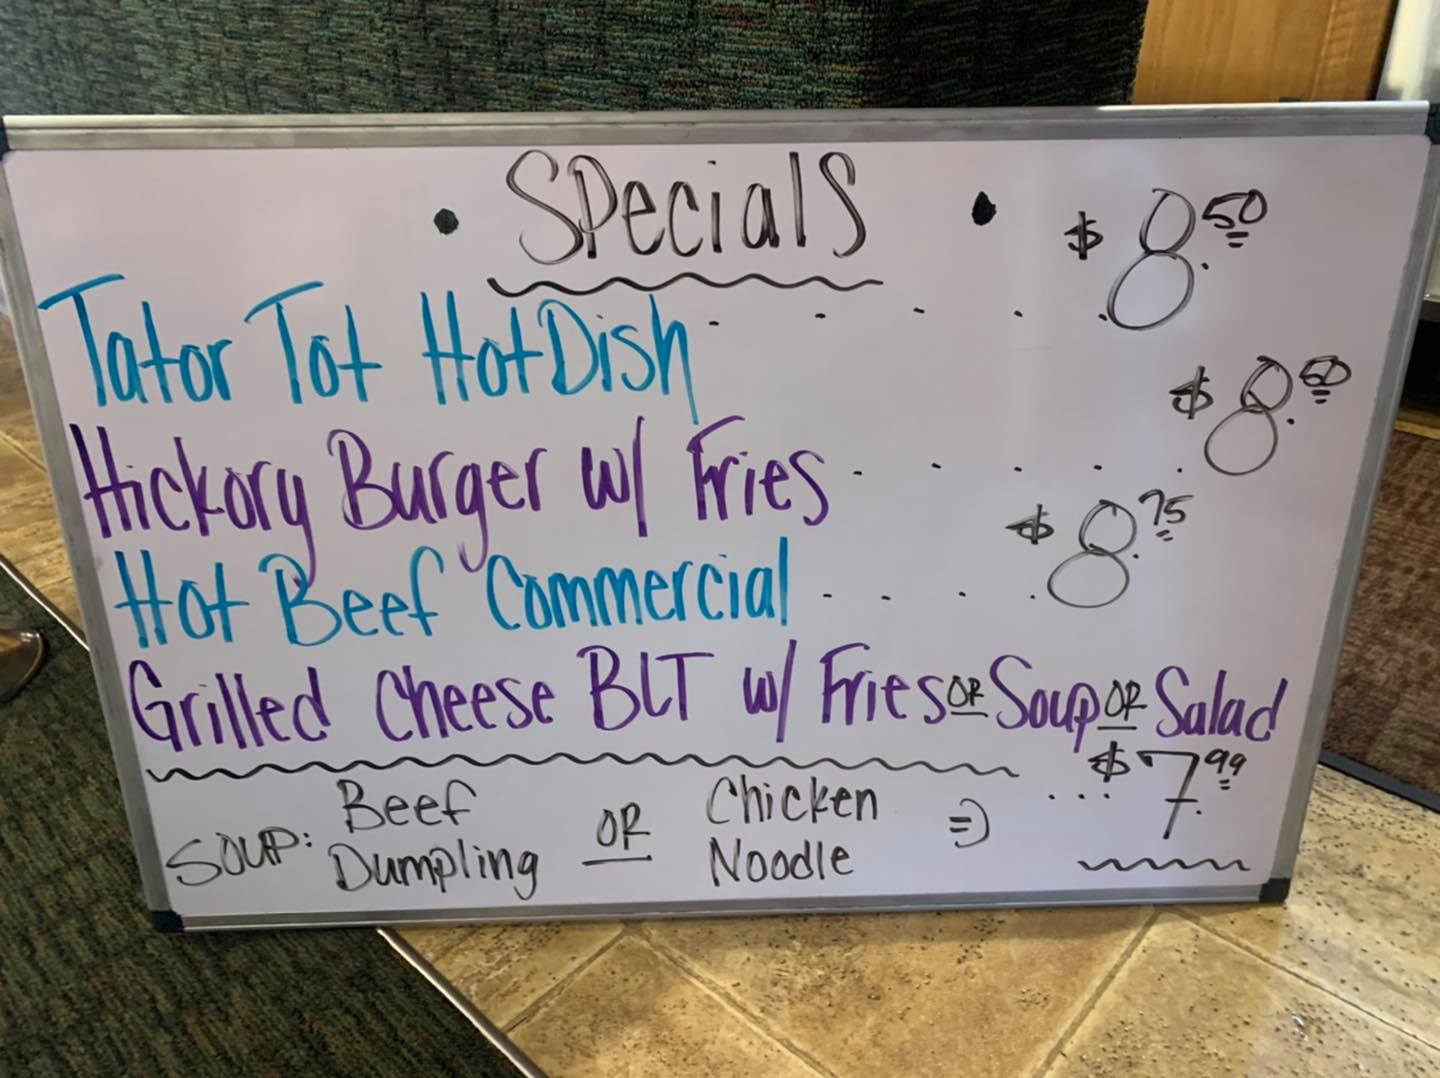 • Specials •
Tator Tot HotDish . . . . . $8.50
Hickory Burger w/ Fries . . . . . $8.50
Hot Beef Commercial . . . . $8.75
Grilled Cheese BLT w/ Fries OR Soup OR Salad
... $7.99
SOUP: Beef Dumpling OR Chicken Noodle =)